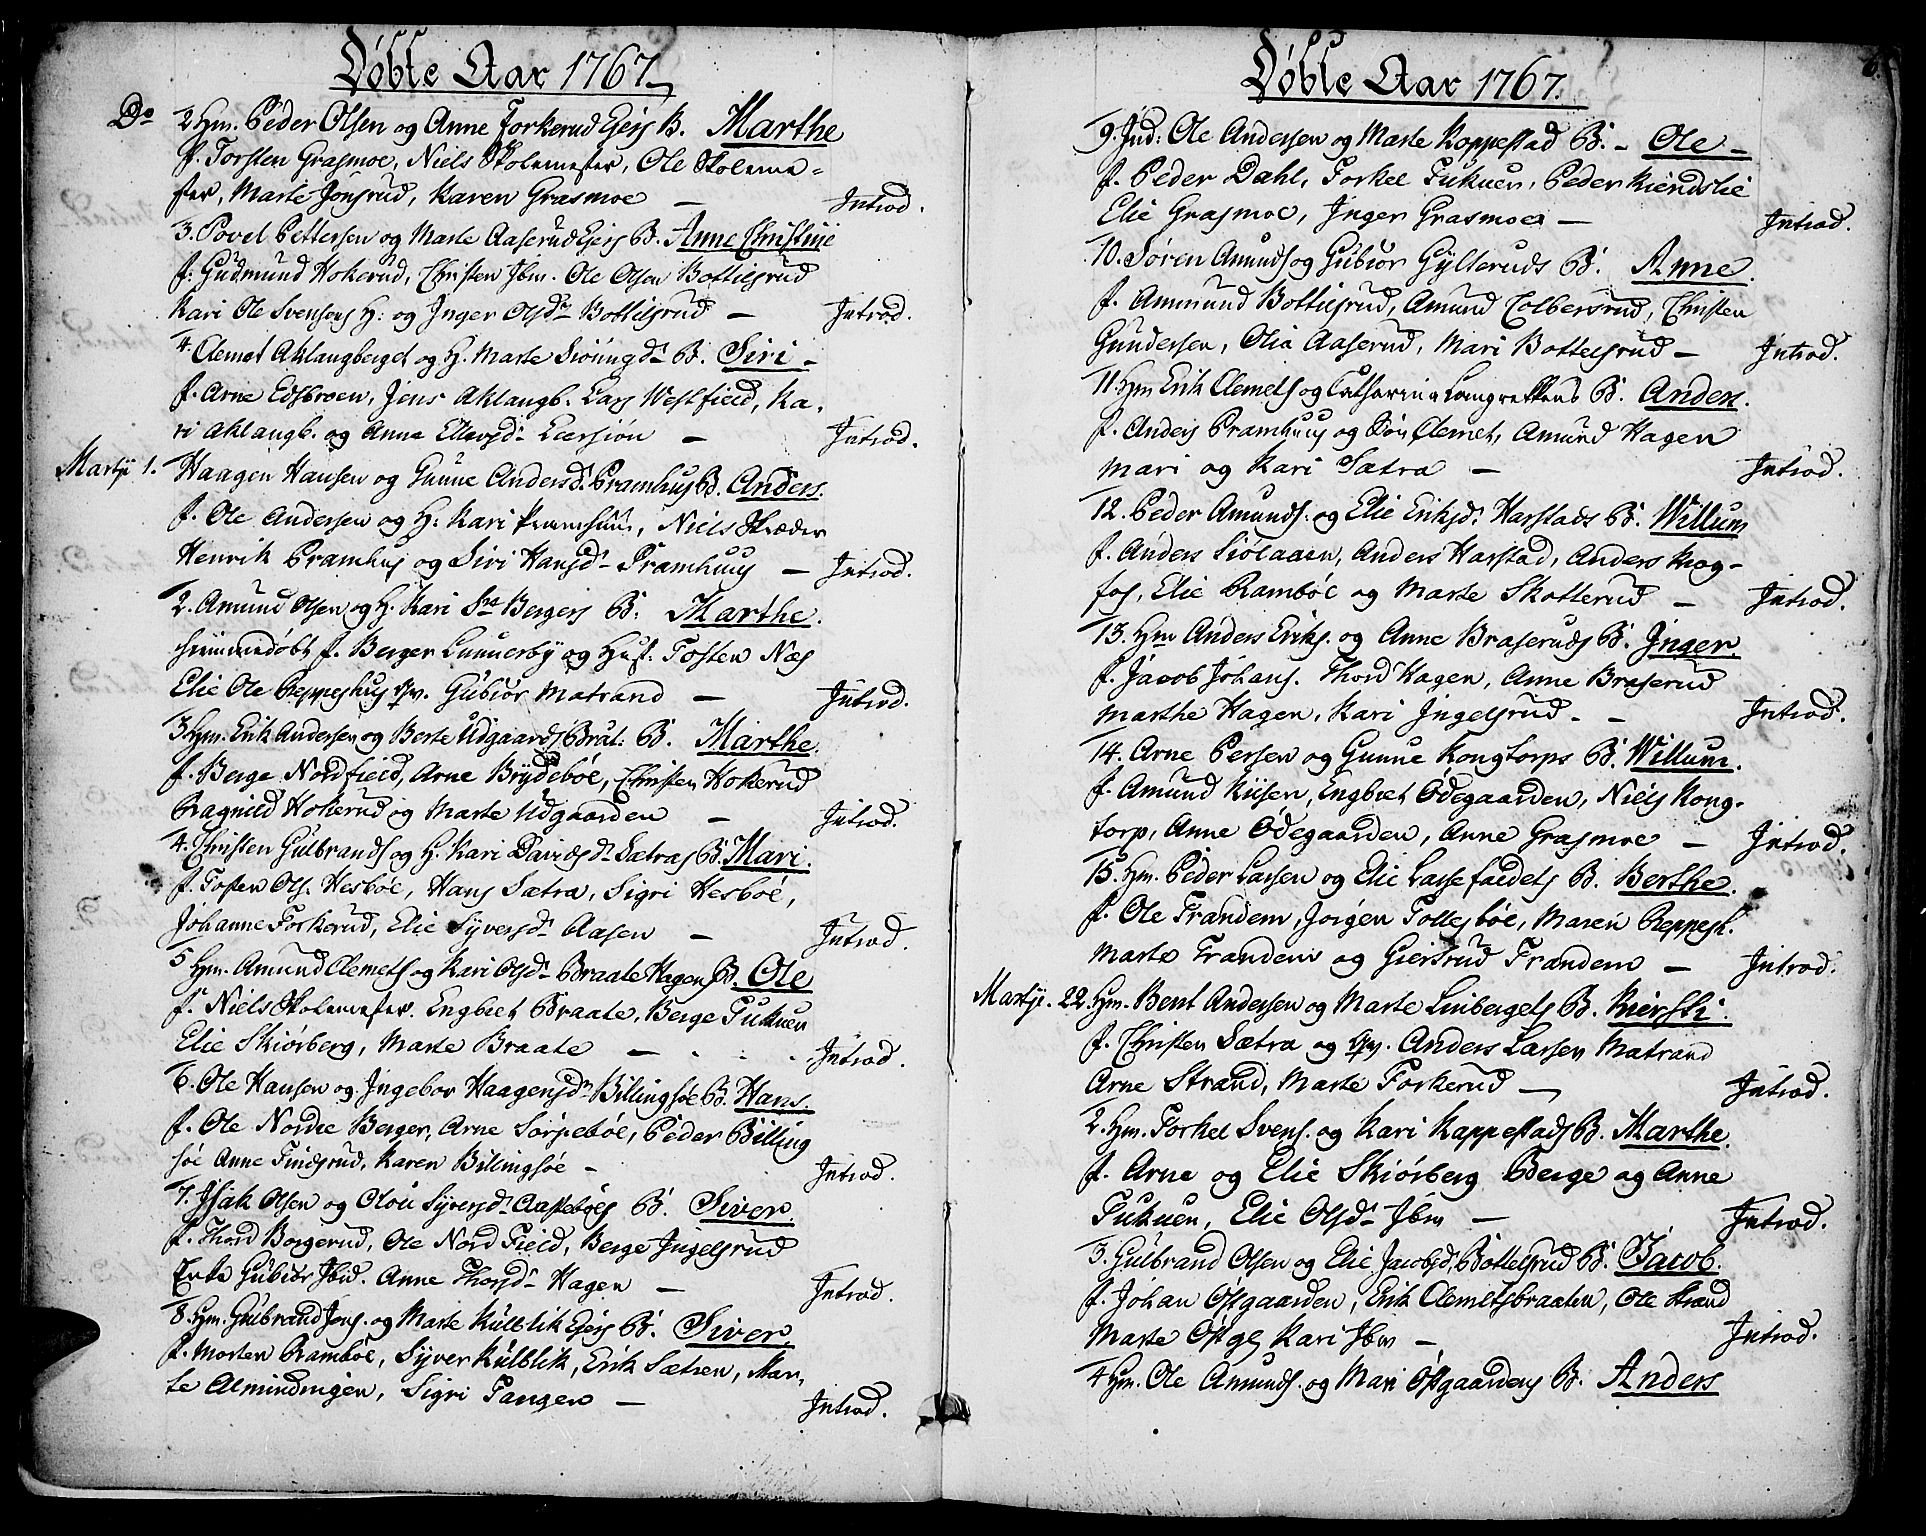 Døbte Aar 1767
Do 2 Hm. Peder Olsen og Anne Forkerud Ejers B. Marthe
f. Torsten Grasmoe, Niels Skolemester, Ole Skoleme-
ster, Marte Jonsrud, Karen Grasmoe — Introd.
3. Povel Pettersen og Marte Aaserud Ejers B. Anne Christine
f: Gudmund Hokerud, Christen Ibm. Ole Olsen Bottilsrud
Kari Ole Svensens H: og Inger Olsdr Bottilsrud — Introd.
4. Clemet Aklangberget og H. Marte Siöungdr B. Siri —
f. Arne Edsbroen, Jens Aklangb. Lars Westfield, Ka-
ri Aklangb. og Anne Ellevsdr Leersiön — Introd.
Martji 1. Haagen Hansen og Gunne Andersd. Pramhus B. Anders.
f. Ole Andersen og H: Kari Pramhuus, Niels Skræder
Henrik Pramhus og Siri Hansdr Pramhuus — Introd.
2. Amund Olsen og H. Kari Sre Bergers B: Marthe.
hiemmedøbt f. Berger Lunnerby og Hust: Tosten Næs
Elie Ole Reppeshus Qv. Gubiør Matrand — Introd.
3 Hm. Erik Andersen og Berte Udgaards Brat: B. Marthe.
f. Berge Nordfield, Arne Brydeböe, Christen Hokerud
Ragnild Hokerud og Marte Udgaarden — Introd.
4. Christen Gulbrands og H. Kari Davidsdr Sætras B. Mari.
f. Tosten Ols. Hesböe, Hans Sætra, Sigri Hesböe,
Johanne Forkerud, Elie Syversdr Aasen — Introd.
5 Hm. Amund Clemets og Kari Olsdr Braate Hagen B. Ole
f. Niels Skolemester. Engbret Braate, Berge Tukuen
Elie Skiørberg, Marte Braate — Introd.
6. Ole Hansen og Ingebor Haagensdr Billingsöe B. Hans.
f. Ole Nordre Berger, Arne Sörpeböe, Peder Billing
söe Anne Findsrud, Karen Billingsöe — Introd.
7. Isak Olsen og Oloü Syversdr Aasteböes B. Siver.
f. Thord Borgerud, Ole Nord Field, Berge Ingelsrud
Enke Gubiör Ibid. Anne Thorsdr Hagen — Introd.
8. Hm. Gulbrand Jons. og Marte Kulblik Ejers B. Siver.
f. Morten Ramböe, Syver Külblik, Erik Sætren, Mar-
te Almindingen, Sigri Tangen — Introd.
Døbte Aar 1767.
9. Ind: Ole Andersen og Marte Koppestad B. — Ole —
f. Peder Dahl, Forkel Tukuen, Peder Kiendslie
Elie Grasmoe, Inger Grasmoe — Introd.
10. Søren Amunds og Gubiør Gylteruds B. Anne.
f. Ammund Bottilsrud, Amund Colbersrud, Christen
Gundersen, Olia Aaserud, Mari Bottelsrud — Introd.
11. Hm Erik Clemets og Catharina Langrekkens B. Anders.
f. Anders Pramhuus og Søn Clemet, Amund Hagen
Mari og Kari Sætra — Introd.
12. Peder Amunds. og Elie Eriksdr Harstads B. Willum
f. Anders Siölaaen, Anders Harstad, Anders Krog-
fos, Elie Ramböe og Marte Skotterud — Introd.
13. Hm Anders Eriks. og Anne Braseruds B. Inger.
f. Jacob Johans. Thord Hagen, Anne Braserud
Marthe Hagen, Kari Ingelsrud. — Introd.
14. Arne Persen og Gunne Kongtorps B. Willum.
f. Amund Kiisen, Engbret Ödegaarden, Niels Kong-
torp, Anne Ödegaarden, Anne Grasmoe — Introd.
15. Hm. Peder Larsen og Elie Lassefaldets B. Berthe.
f. Ole Trandem, Jörgen Tollesböe, Maren Reppesh.
Marte Trandem og Giertrud Trandem — Introd.
Martji. 22. Hm. Bent Andersen og Marte Linbergets B. Kiersti.
f. Christen Sætra og Qv. Anders Larsen Matrand
Arne Strand, Marte Forkerud — Introd.
2. Hm. Forkel Svens. og Kari Kappestads B. Marthe.
f. Arne og Elie Skiörberg Berge og Anne
Tukuen, Elie Olsdr Ibm — Introd.
3. Gulbrand Olsen og Elie Jacobsd. Bottelsrud B. Jacob.
f. Johan Östgaarden, Erik Clemetsbraaten, Ole Strand
Marte Östg. Kari Ibm — Introd.
4 Hm. Ole Amunds. og Mari Östgaardens B. Anders